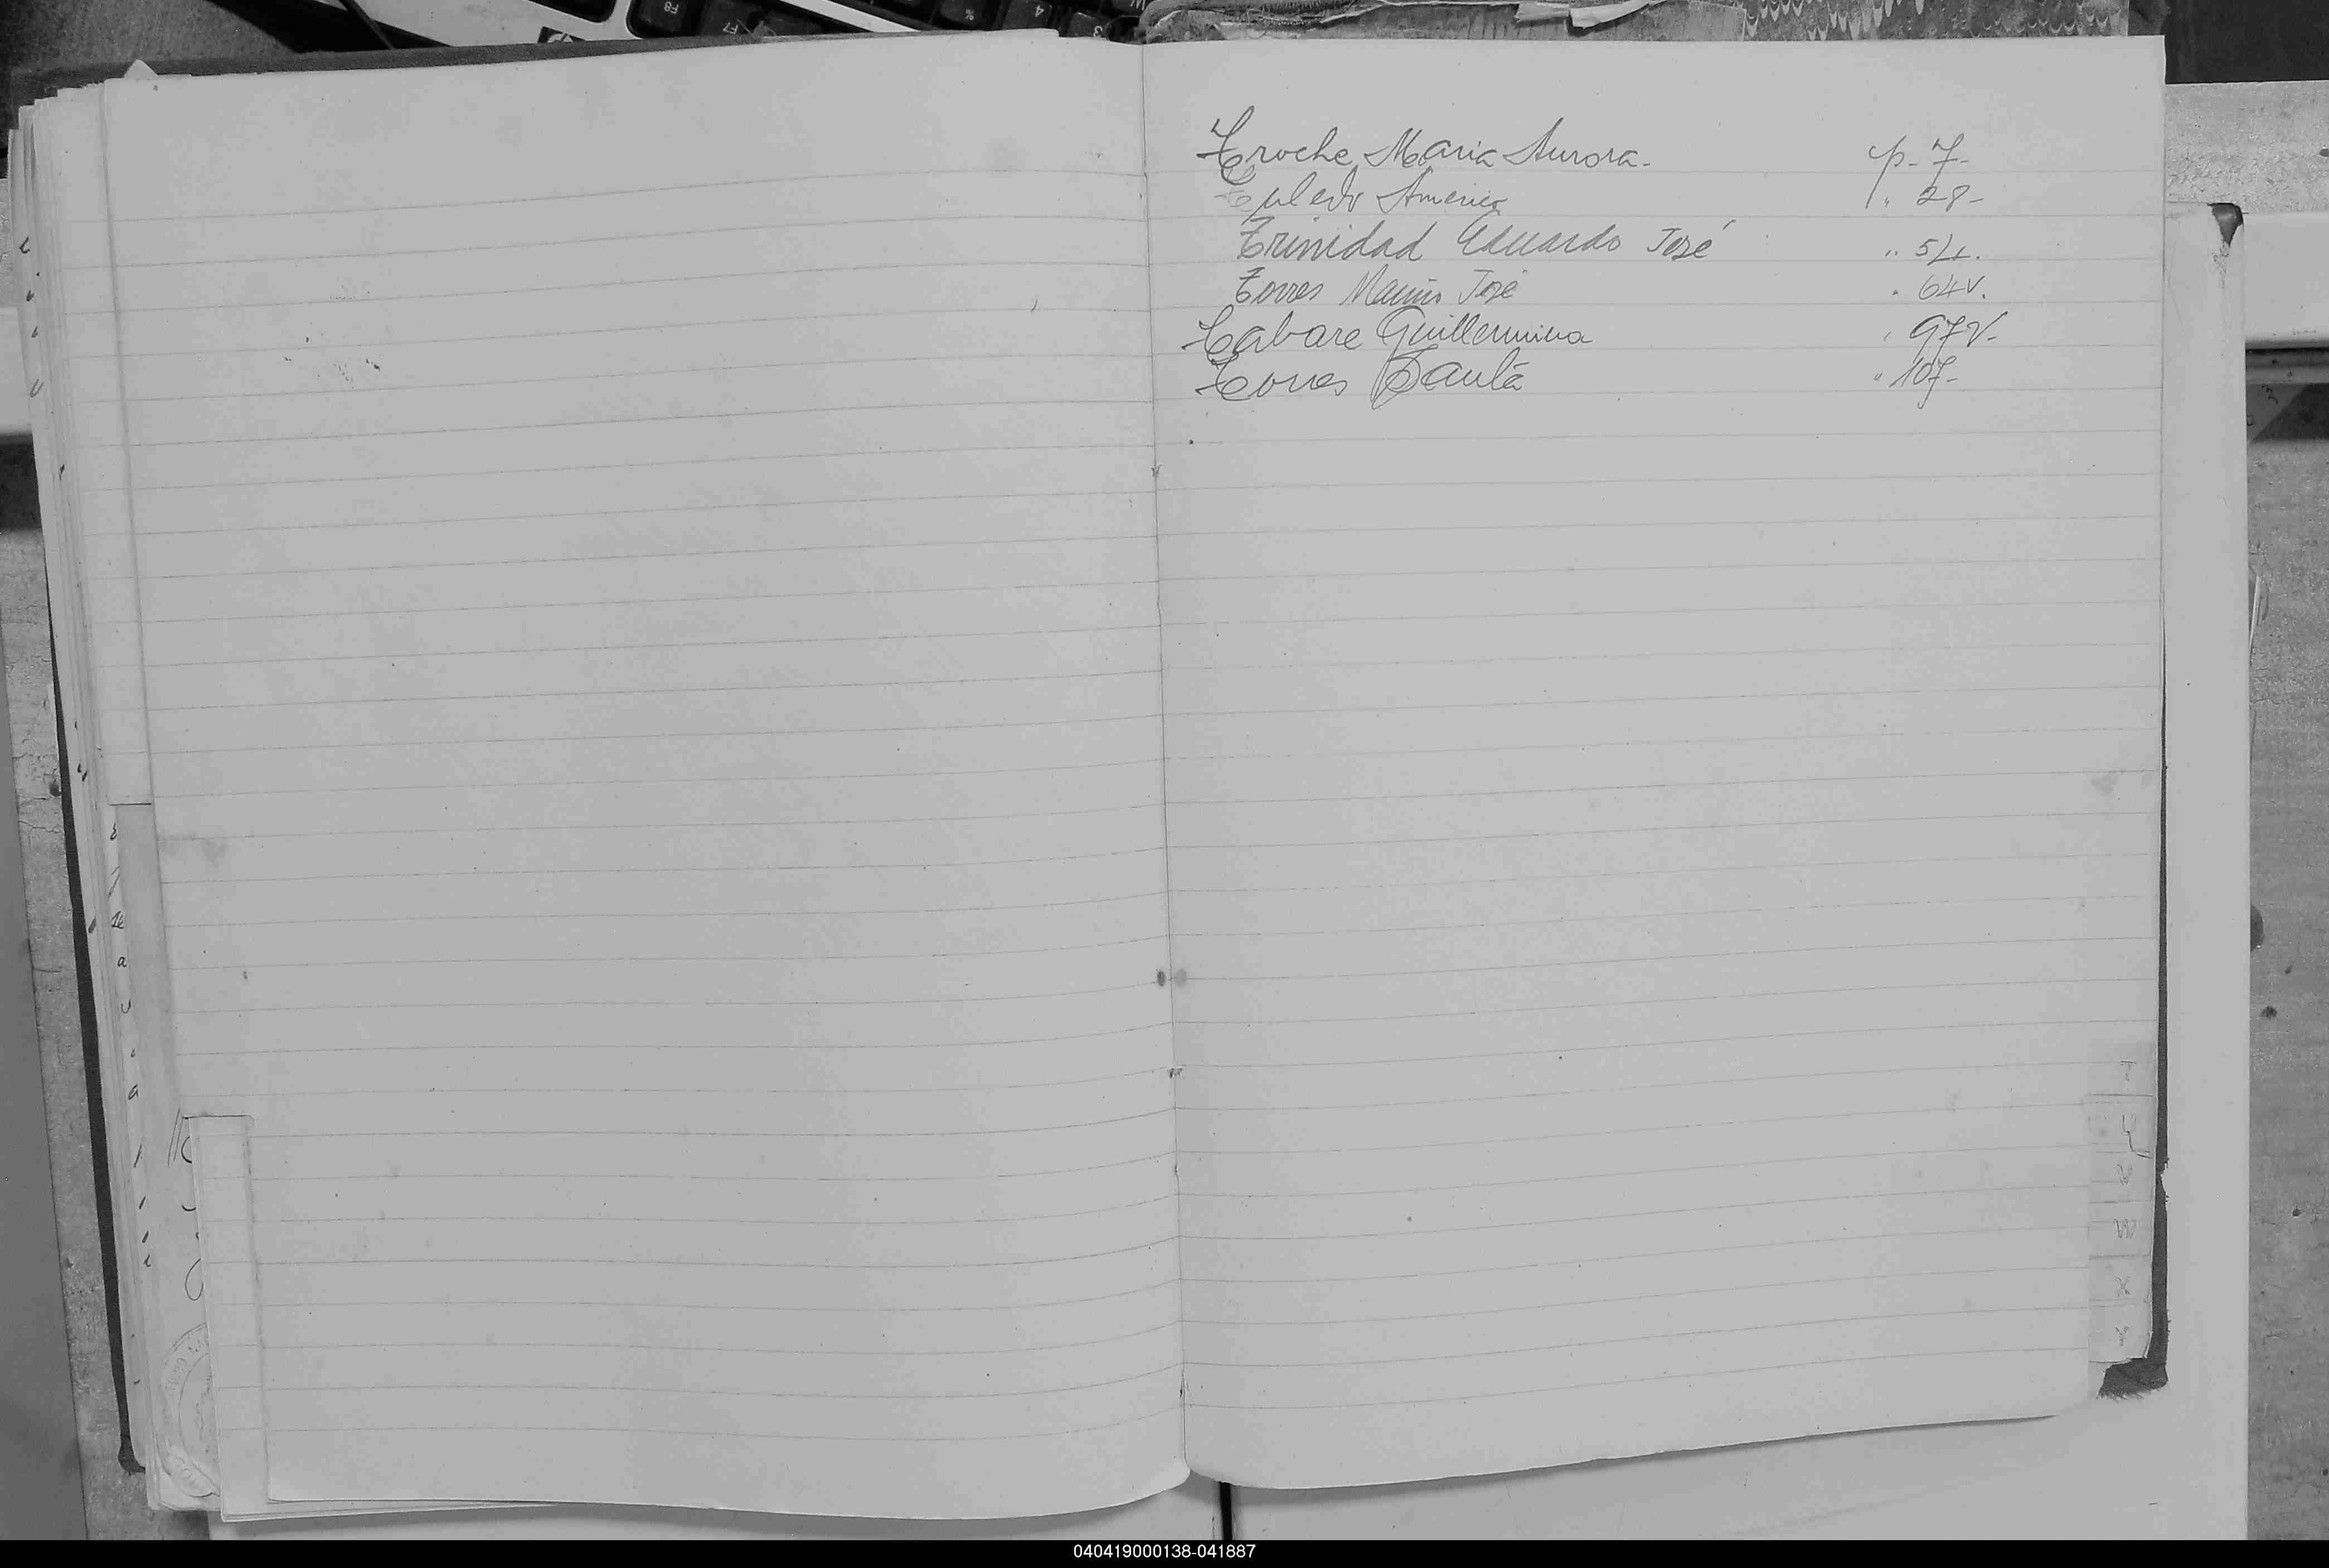 Troche Maria Aurora. p. 7-
Toledo Americo " 28-
Trinidad Eduardo José " 54.
Torres José " 64v.
Tabare Guillermina " 97v-
Torres Paula " 107-
040419000138-041887